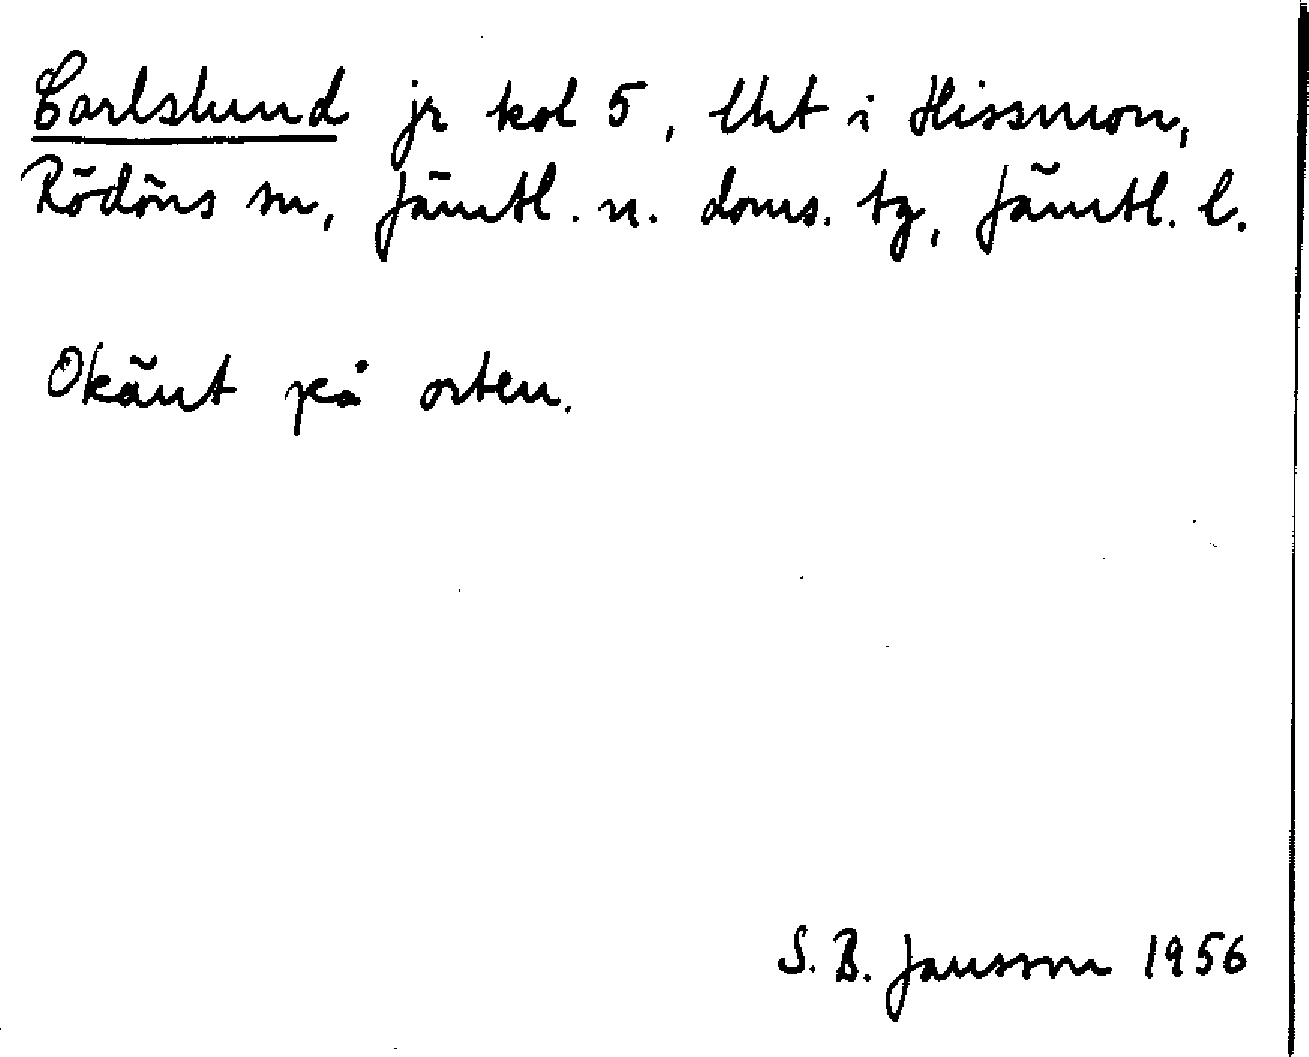 Carlslund jr kol 5, lht i Hissmon,
Rödöns sn, Jämtl. n. doms. tg, Jämtl. l.
Okänt på orten.
S. B. Jansson 1956